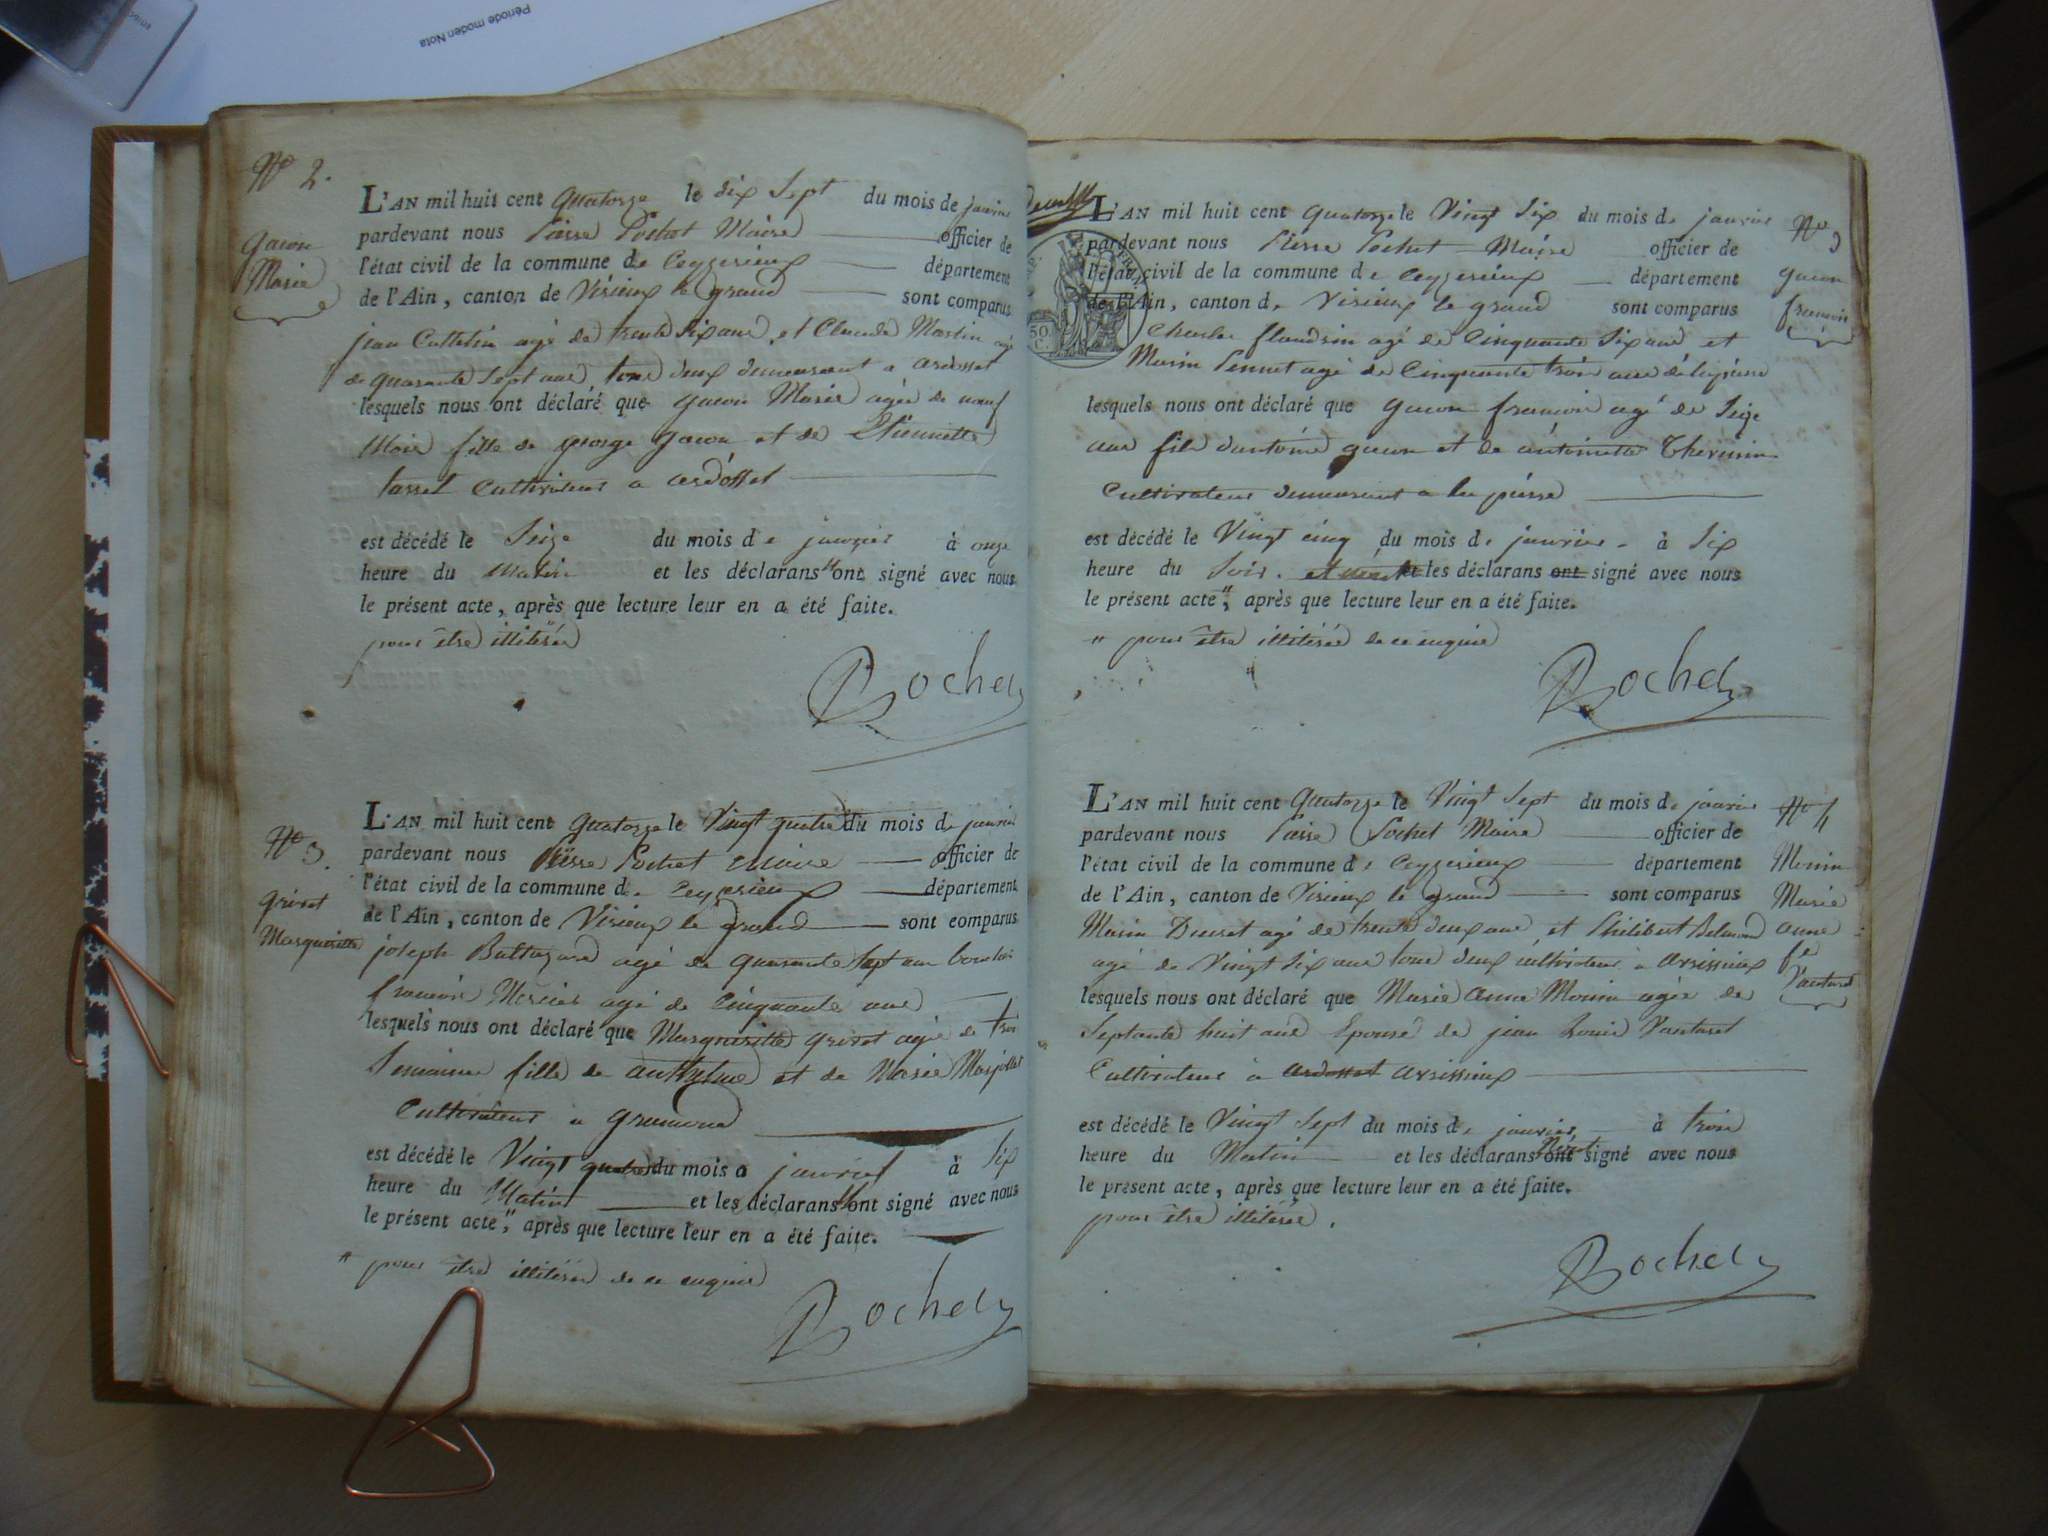 Période moden Nota
N° 2.
gacon
Marie
L'AN mil huit cent quatorze le dix sept du mois de janvier
pardevant nous Pierre Pochet Maire officier de
l'état civil de la commune de Ceyzerieux département
de l'Ain, canton de Virieux le grand sont comparus
jean Cattelin agé de trente six ans, et Claude Martin agé
de quarante sept ans, tous deux demeurant a ardosset
lesquels nous ont déclaré que gacon Marie agée de neuf
Mois fille de george gacon et de Etiennette
tarrel Cultivateur a ardosset
est décédé le Seize du mois de janvier à onze
heure du Matin et les déclarans "ont signé avec nous
le présent acte, après que lecture leur en a été faite.
pour être illitérés
Pochet
N° 3.
grivet
Margueritte
L'AN mil huit cent quatorze le Vingt quatre du mois de janvier
pardevant nous Pierre Pochet Maire officier de
l'état civil de la commune de Ceyzerieux département
de l'Ain, canton de Virieux le grand sont comparus
joseph Baltazard agé de quarante sept ans
françois Mercier agé de Cinquante ans
lesquels nous ont déclaré que Margueritte grivet agée de trois
Semaines fille de anthelme et de Marie
Cultivateur a
est décédé le Vingt quatre du mois janvier à Six
heure du Matin et les déclarans ont signé avec nous
le présent acte", après que lecture leur en a été faite.
" pour être illitérés de ce enquis
Pochet
L'AN mil huit cent quatorze le Vingt Six du mois de janvier
pardevant nous Pierre Pochet Maire officier de
l'état civil de la commune de Ceyzerieux département
de l'Ain, canton de Virieux le grand sont comparus
Charles flandrin agé de Cinquante Six ans et
Marin Pennet agé de Cinquante trois ans de lapierre
lesquels nous ont déclaré que gacon françois agé de Seize
ans fils d'antoine gacon et de antoinette
Cultivateur demeurant a la pierre
est décédé le Vingt cinq du mois de janvier à Six
heure du Soir. et les déclarans ont signé avec nous
le présent acte", après que lecture leur en a été faite.
" pour être illitérés de ce enquis
Pochet
N° 3
gacon
françois
50
C.
L'AN mil huit cent quatorze le Vingt Sept du mois de janvier
pardevant nous Pierre Pochet Maire officier de
l'état civil de la commune de Ceyzerieux département
de l'Ain, canton de Virieux le grand sont comparus
Marin Ducret agé de trente deux ans et Philibert
agé de Vingt Six ans tous deux cultivateurs a avrissieux
lesquels nous ont déclaré que Marie Anne Monin agée de
Septante huit ans Epouse de jean Louis Vanturet
Cultivateur à ardosset avrissieux
est décédé le Vingt Sept du mois de janvier à trois
heure du Matin et les déclarans ont signé avec nous
le présent acte, après que lecture leur en a été faite.
pour être illitérés.
Pochet
N° 4
Monin
Marie
anne
fe